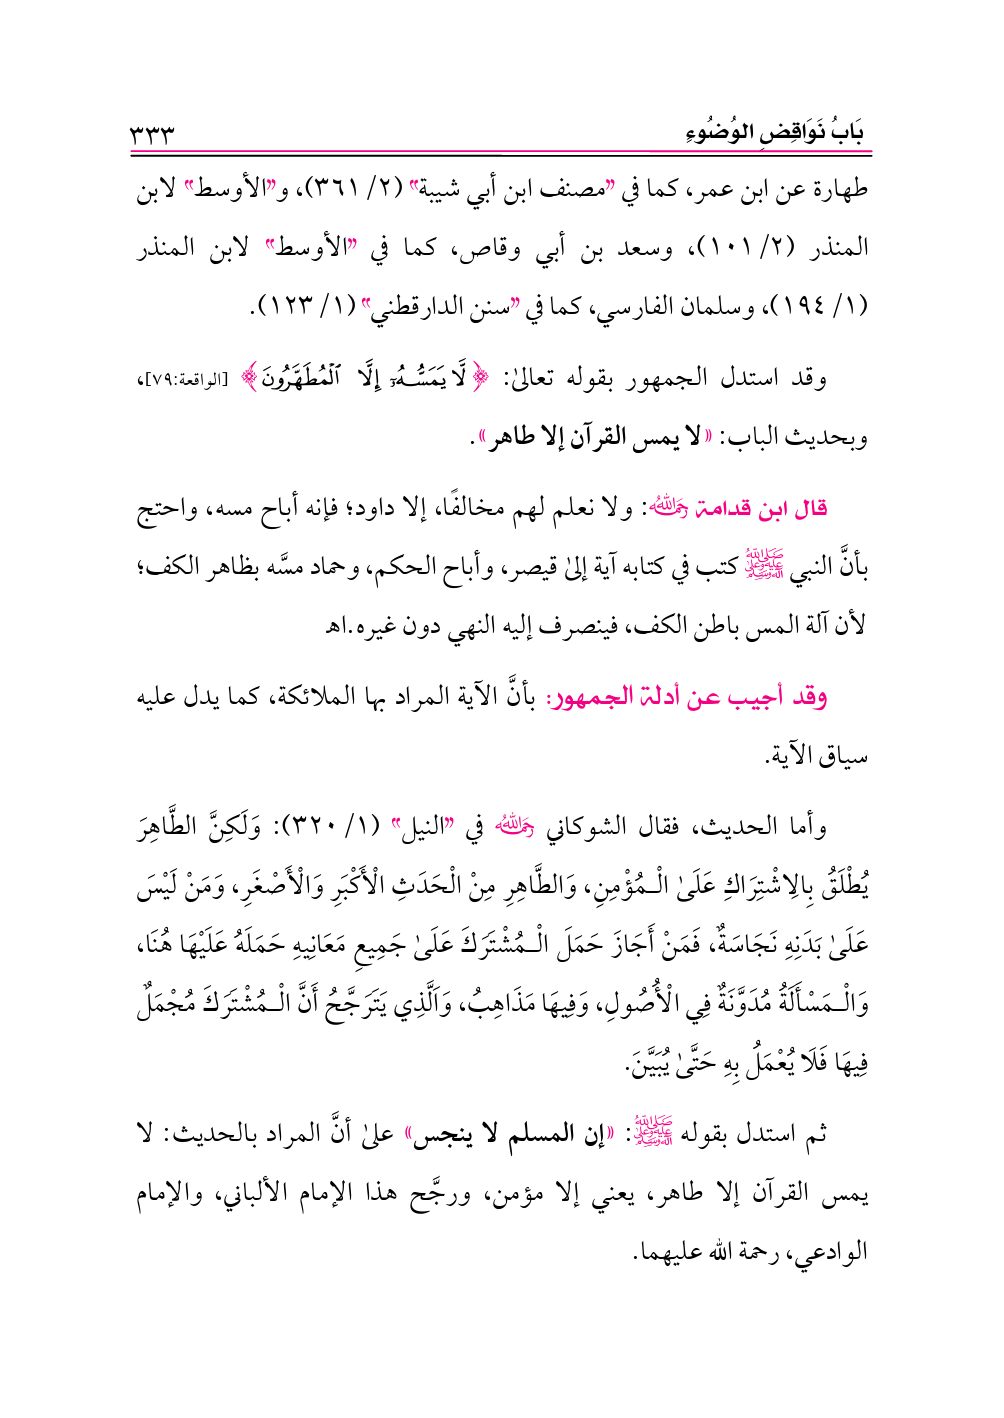 بَابُ نَوَاقِضِ الوُضُوءِ ٣٣٣
طهارة عن ابن عمر، كما في "مصنف ابن أبي شيبة" (٢/ ٣٦١)، و"الأوسط" لابن
المنذر (٢/ ١٠١)، وسعد بن أبي وقاص، كما في "الأوسط" لابن المنذر
(١/ ١٩٤)، وسلمان الفارسي، كما في "سنن الدارقطني" (١/ ١٢٣).
وقد استدل الجمهور بقوله تعالىٰ: ﴿لَّا يَمَسُّهُۥٓ إِلَّا ٱلْمُطَهَّرُونَ﴾ [الواقعة:٧٩]،
وبحديث الباب: «لا يمس القرآن إلا طاهر».
قال ابن قدامة رحمه الله: ولا نعلم لهم مخالفًا، إلا داود؛ فإنه أباح مسه، واحتج
بأنَّ النبي ﷺ كتب في كتابه آية إلىٰ قيصر، وأباح الحكم، وحماد مسَّه بظاهر الكف؛
لأن آلة المس باطن الكف، فينصرف إليه النهي دون غيره.اهـ
وقد أجيب عن أدلة الجمهور: بأنَّ الآية المراد بها الملائكة، كما يدل عليه
سياق الآية.
وأما الحديث، فقال الشوكاني رحمه الله في "النيل" (١/ ٣٢٠): وَلَكِنَّ الطَّاهِرَ
يُطْلَقُ بِالِاشْتِرَاكِ عَلَىٰ الْـمُؤْمِنِ، وَالطَّاهِرِ مِنْ الْحَدَثِ الْأَكْبَرِ وَالْأَصْغَرِ، وَمَنْ لَيْسَ
عَلَىٰ بَدَنِهِ نَجَاسَةٌ، فَمَنْ أَجَازَ حَمَلَ الْـمُشْتَرَكَ عَلَىٰ جَمِيعِ مَعَانِيهِ حَمَلَهُ عَلَيْهَا هُنَا،
وَالْـمَسْأَلَةُ مُدَوَّنَةٌ فِي الْأُصُولِ، وَفِيهَا مَذَاهِبُ، وَاَلَّذِي يَتَرَجَّحُ أَنَّ الْـمُشْتَرَكَ مُجْمَلٌ
فِيهَا فَلَا يُعْمَلُ بِهِ حَتَّىٰ يُبَيَّنَ.
ثم استدل بقوله ﷺ: «إن المسلم لا ينجس» علىٰ أنَّ المراد بالحديث: لا
يمس القرآن إلا طاهر، يعني إلا مؤمن، ورجَّح هذا الإمام الألباني، والإمام
الوادعي، رحمة الله عليهما.